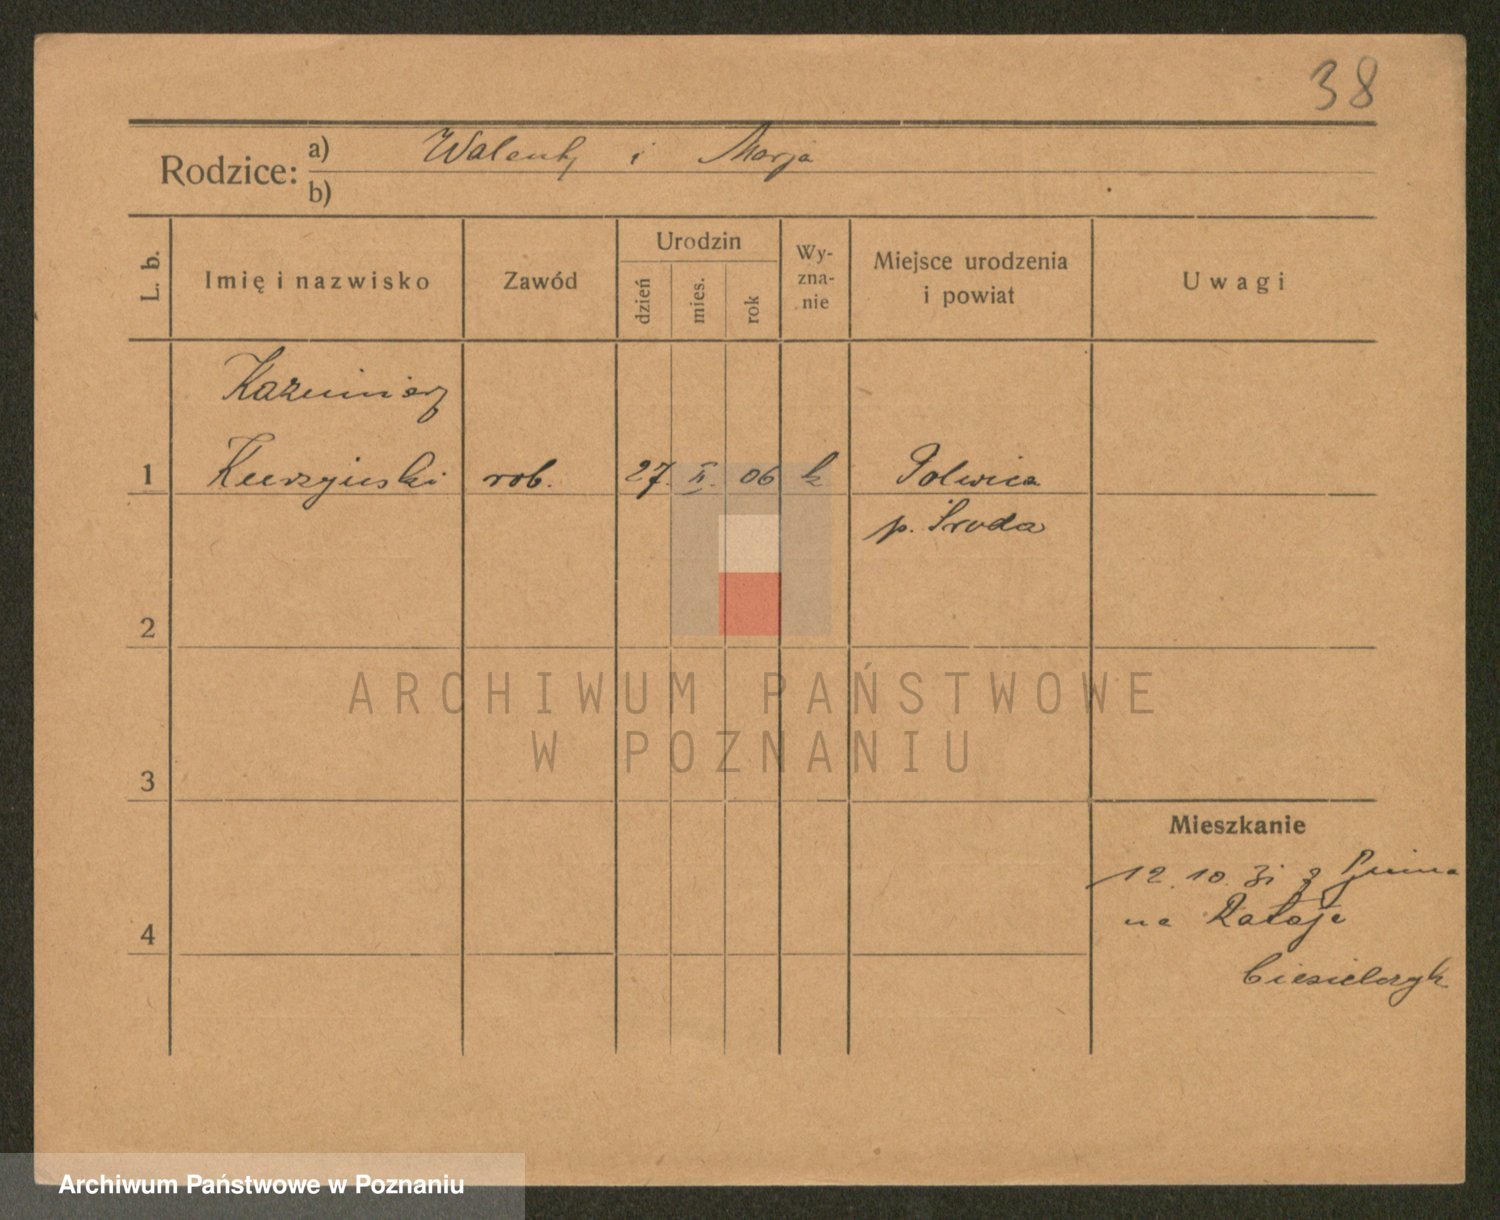 38
Rodzice: a) Walenty i Marja
b)
L. b.
Imię i nazwisko
Zawód
Urodzin
dzień
mies.
rok
Wy-
zna-
nie
Miejsce urodzenia
i powiat
Uwagi
Kazimierz
1 Kurzynski rob. 27. II. 06 k Polwica
p. Środa
2
3
4
Mieszkanie
12.10.31 z
na Rataje
Ciesielczyk
ARCHIWUM PAŃSTWOWE
W POZNANIU
Archiwum Państwowe w Poznaniu